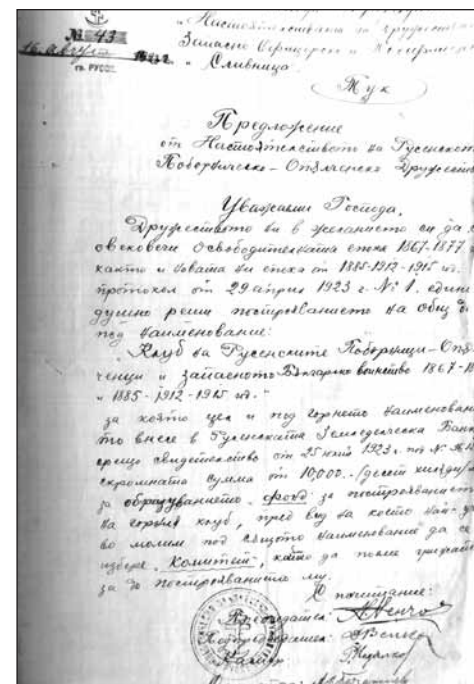 № 43
16. август
гр. РУССЕ
Настоятелствата на Дружествата
Запасно Офицерско и
"Сливница"
Тук
Предложение
от Настоятелството на Русенското
Поборническо-Опълченско Дружество
Уважаеми Господа,
Дружеството ни в желанието си да
овековечи Освободителната епоха 1867-1877
както и новата ни епоха от 1885-1912-1915 из.
протокол от 29 април 1923 г. № 1. едино
душно реши построяването на общ
под наименование:
"Клуб на Русенските Поборници-Опъл
ченци и запасното Българско воинство 1867-18
и 1885-1912-1915 из."
за която цел и под горнето наименова
то внесе в Русенската Земледелческа Банка
срещу свидетелство от 25 юний 1923 г. под №
скромната сумма от 10,000.- (десет хиляди)
за образуванието фонд за построяванието
на горния клуб, пред вид на което най-
во молим под същото наименование да се
избере "Комитет", който да поеме
за до построяванието му.
С почитание:
Председател:
Подпредседател:
Касиер: